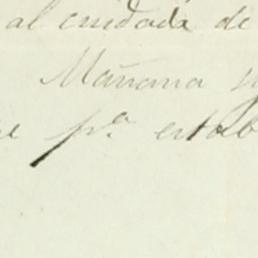 al cuidado de
Mañana
pª estab